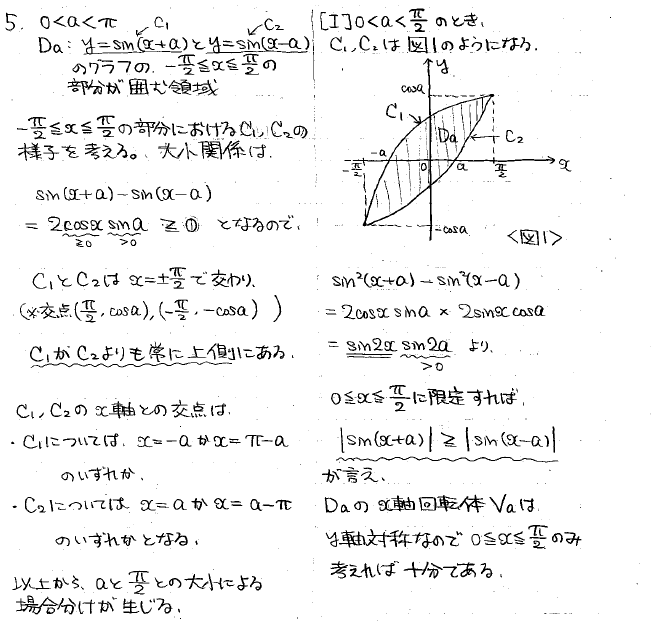 5. 0<a<π C₁ C₂
Da: y=sin(x+a)とy=sin(x-a)
のグラフの、-π/2≦x≦π/2の
部分が囲む領域
-π/2≦x≦π/2の部分におけるC₁, C₂の
様子を考える。大小関係は、
sin(x+a)-sin(x-a)
= 2cosx sina ≧ 0 となるので、
≧0 >0
C₁とC₂は x=±π/2で交わり、
(※交点(π/2, cosa), (-π/2, -cosa) )
C₁がC₂よりも常に上側にある。
C₁, C₂のx軸との交点は、
・C₁については、x=-aかx=π-a
のいずれか、
・C₂については x=aかx=a-π
のいずれかとなる。
以上から、aとπ/2との大小による
場合分けが生じる。
[I] 0<a<π/2のとき、
C₁, C₂は図1のようになる。
y
cosa
C₁
Da
C₂
-π/2 -a 0 a π/2 x
-cosa
<図1>
sin²(x+a)-sin²(x-a)
= 2cosx sina × 2sinx cosa
= sin2x sin2a より、
>0
0≦x≦π/2に限定すれば、
|sin(x+a)| ≧ |sin(x-a)|
が言え、
Daのx軸回転体Vaは
y軸対称なので 0≦x≦π/2のみ
考えれば十分である。